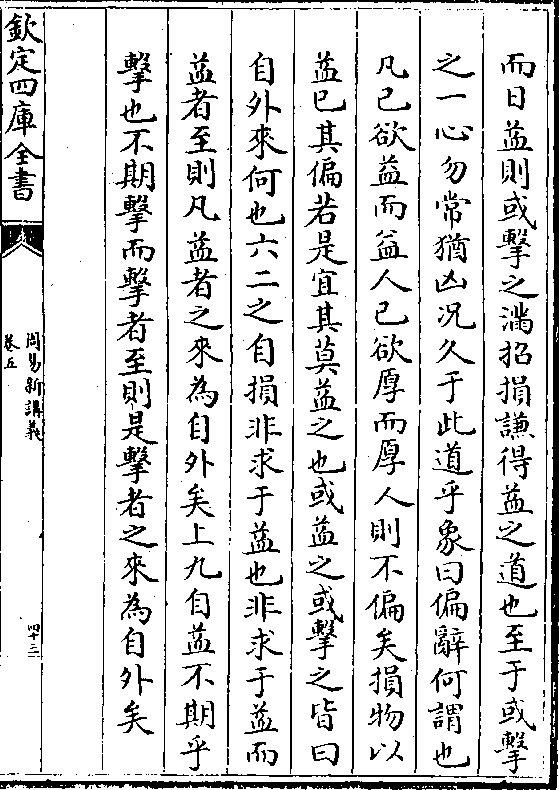 而日益則或擊之滿招損謙得益之道也至于或擊
之一心勿常猶凶况久于此道乎象曰偏辭何謂也
凡已欲益而益人已欲厚而厚人則不偏矣損物以
益已其偏若是宜其莫益之也或益之或擊之皆曰
自外來何也六二之自損非求于益也非求于益而
益者至則凡益者之來為自外矣上九自益不期乎
擊也不期擊而擊者至則是擊者之來為自外矣
欽定四庫全書
周易新講義
卷五
四十三